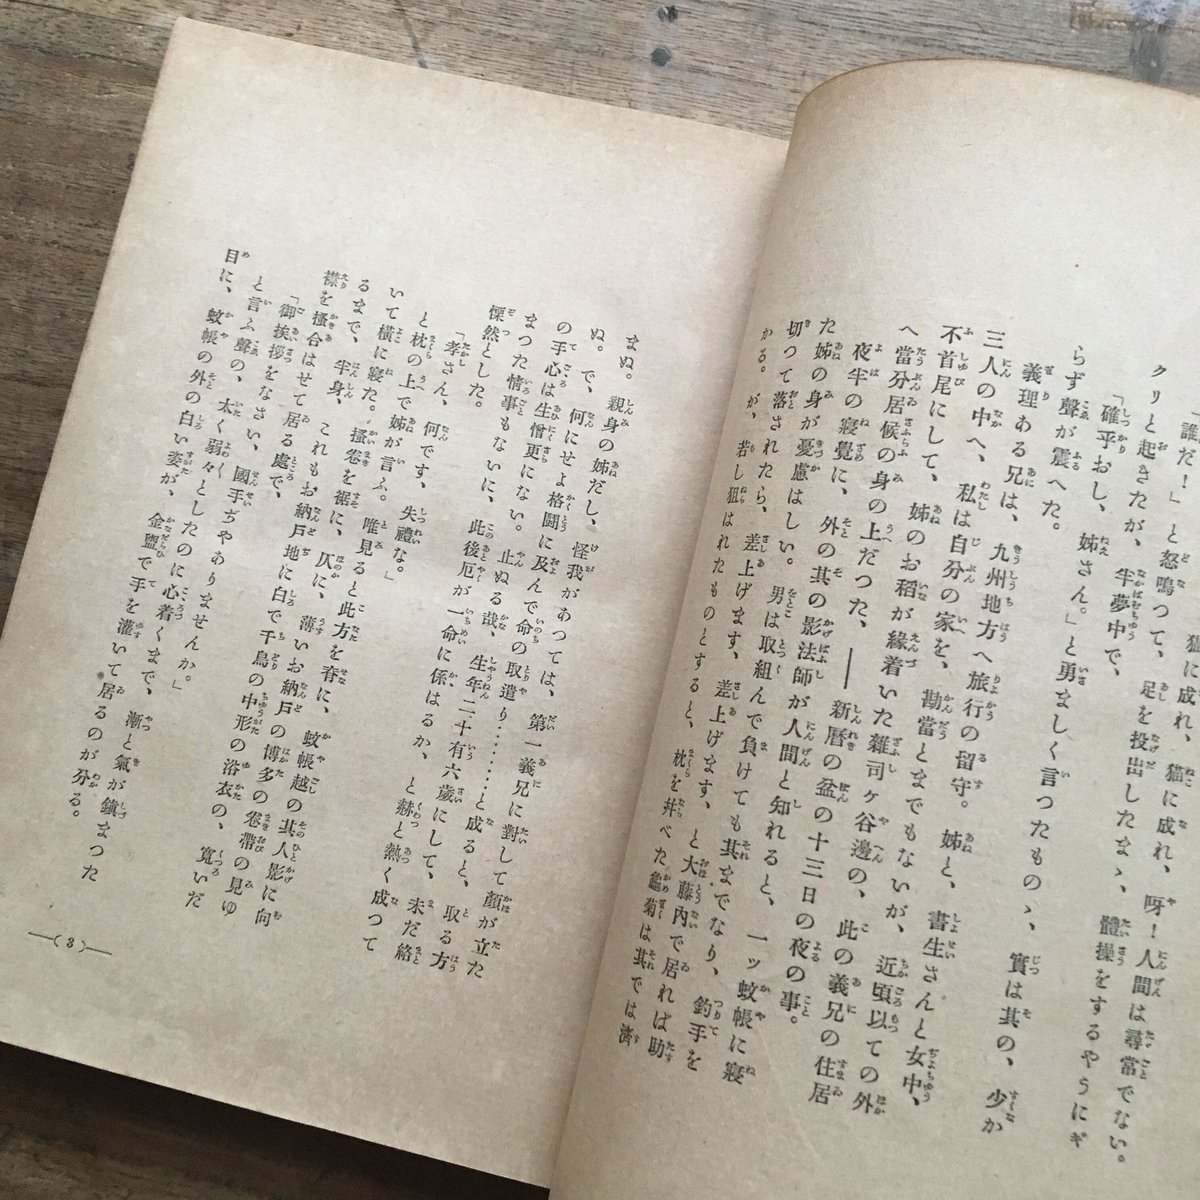 狐に成れ、猫に成れ、呀！人間は尋常でない。
誰だ！」と怒鳴つて、足を投出したまゝ、體操をするやうにギ
クリと起きたが、半夢中で、
「確乎おし、姉さん。」と勇ましく言つたものゝ、實は其の、少か
らず聲が震へた。
義理ある兄は、九州地方へ旅行の留守。姉と、書生さんと女中、
三人の中へ、私は自分の家を、勘當とまでもないが、近頃以ての外
不首尾にして、姉のお稻が緣着いた雜司ヶ谷邊の、此の義兄の住居
へ當分居候の身の上だつた、――新曆の盆の十三日の夜の事。
夜半の寢覺に、外の其の影法師が人間と知れると、一ッ蚊帳に寢
た姉の身が憂慮はしい。男は取組んで負けても其までなり、釣手を
切つて落されたら、差上げます、差上げます、と大藤內で居れば助
かる。が、若し狙はれたものとすると、枕を并べた龜菊は其では濟
まぬ。親身の姉だし、怪我があつては、第一義兄に對して顏が立た
ぬ。で、何にせよ格鬪に及んで命の取遣り………と成ると、取る方
の手心は生憎更にない。止ぬる哉、生年二十有六歲にして、未だ絡
まつた情事もないに、此後厄が一命に係はるか、と赫と熱く成つて
慄然とした。
「孝さん、何です、失禮な。」
と枕の上で姉が言ふ。唯見ると此方を脊に、蚊帳越の其人影に向
いて橫に寢た。搔卷を裾に、仄に、薄いお納戶の博多の卷帶の見ゆ
るまで、半身、これもお納戶地に白で千鳥の中形の浴衣の、寬いだ
襟を搔合はせて居る處で、
「御挨拶をなさい、國手ぢやありませんか。」
と言ふ聲の、太く弱々としたのに心着くまで、漸と氣が鎭まつた
目に、蚊帳の外の白い姿が、金盥で手を灌いて居るのが分る。
―(3)―